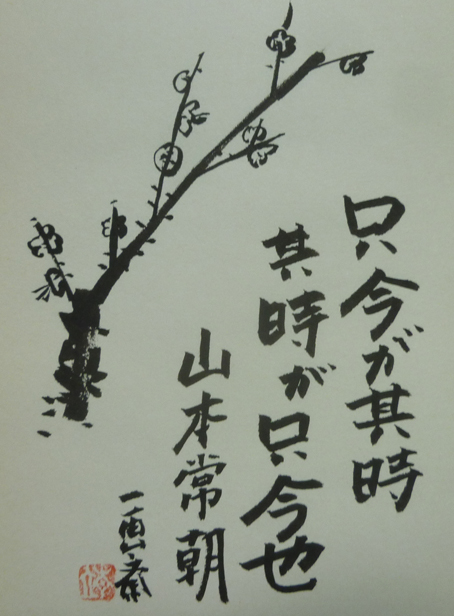 只今が其時
其時が只今也
山本常朝